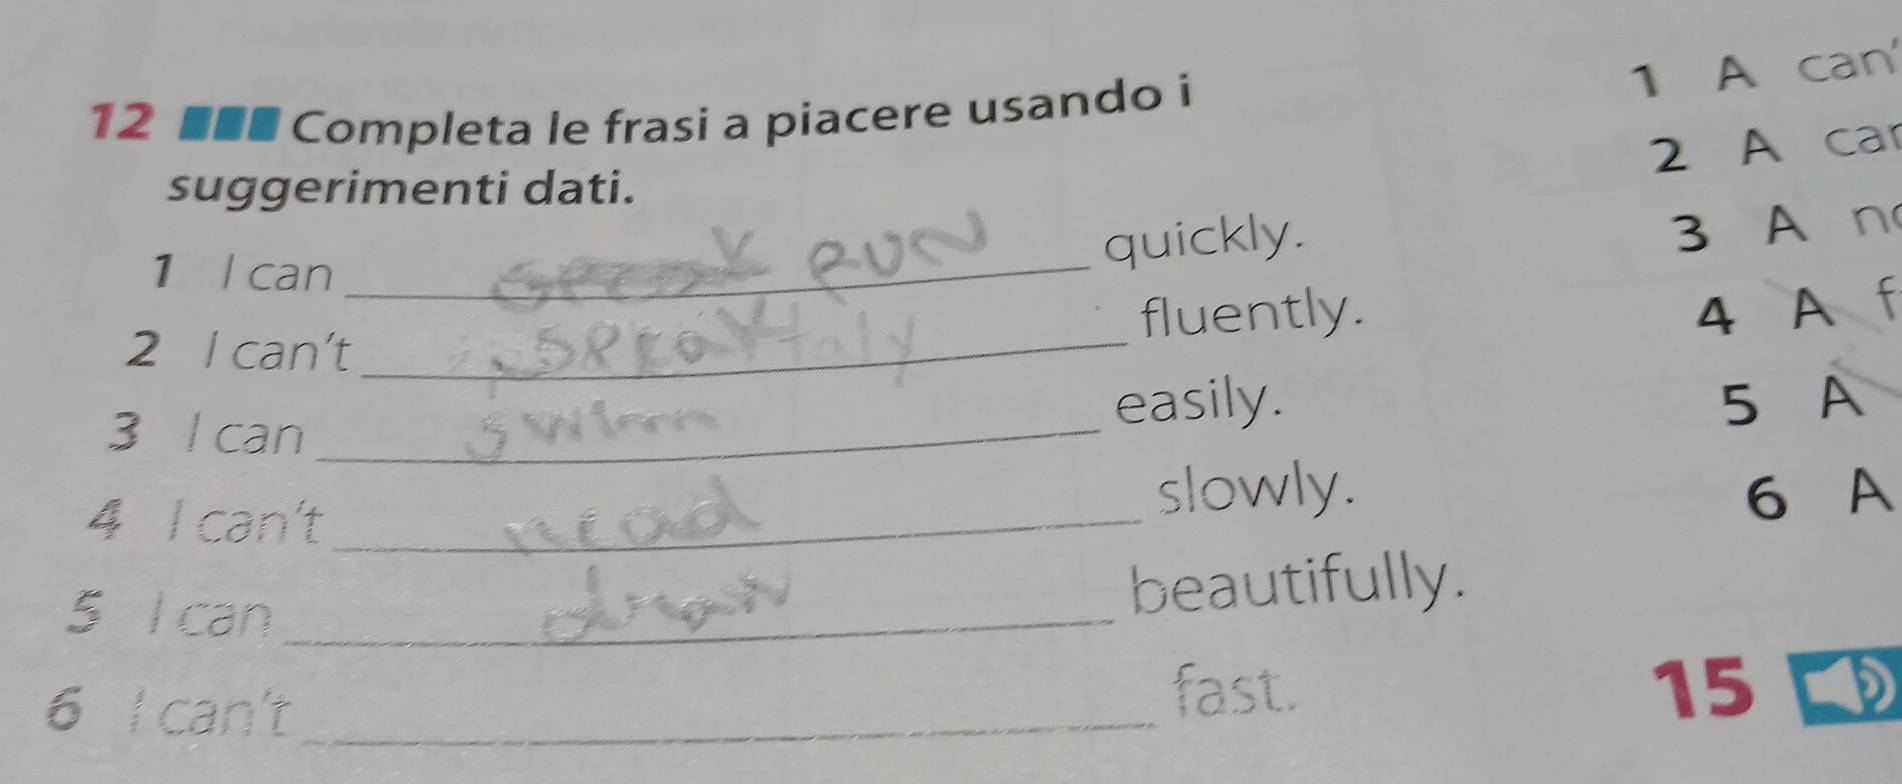 12 Completa le frasi a piacere usando i
suggerimenti dati.
1 I can RUN quickly.
2 I can't speak fluently.
3 I can swim easily.
4 I can't read slowly.
5 I can draw beautifully.
6 I can't fast.
1 A can'
2 A
3 A
4 A
5 A
6 A
15